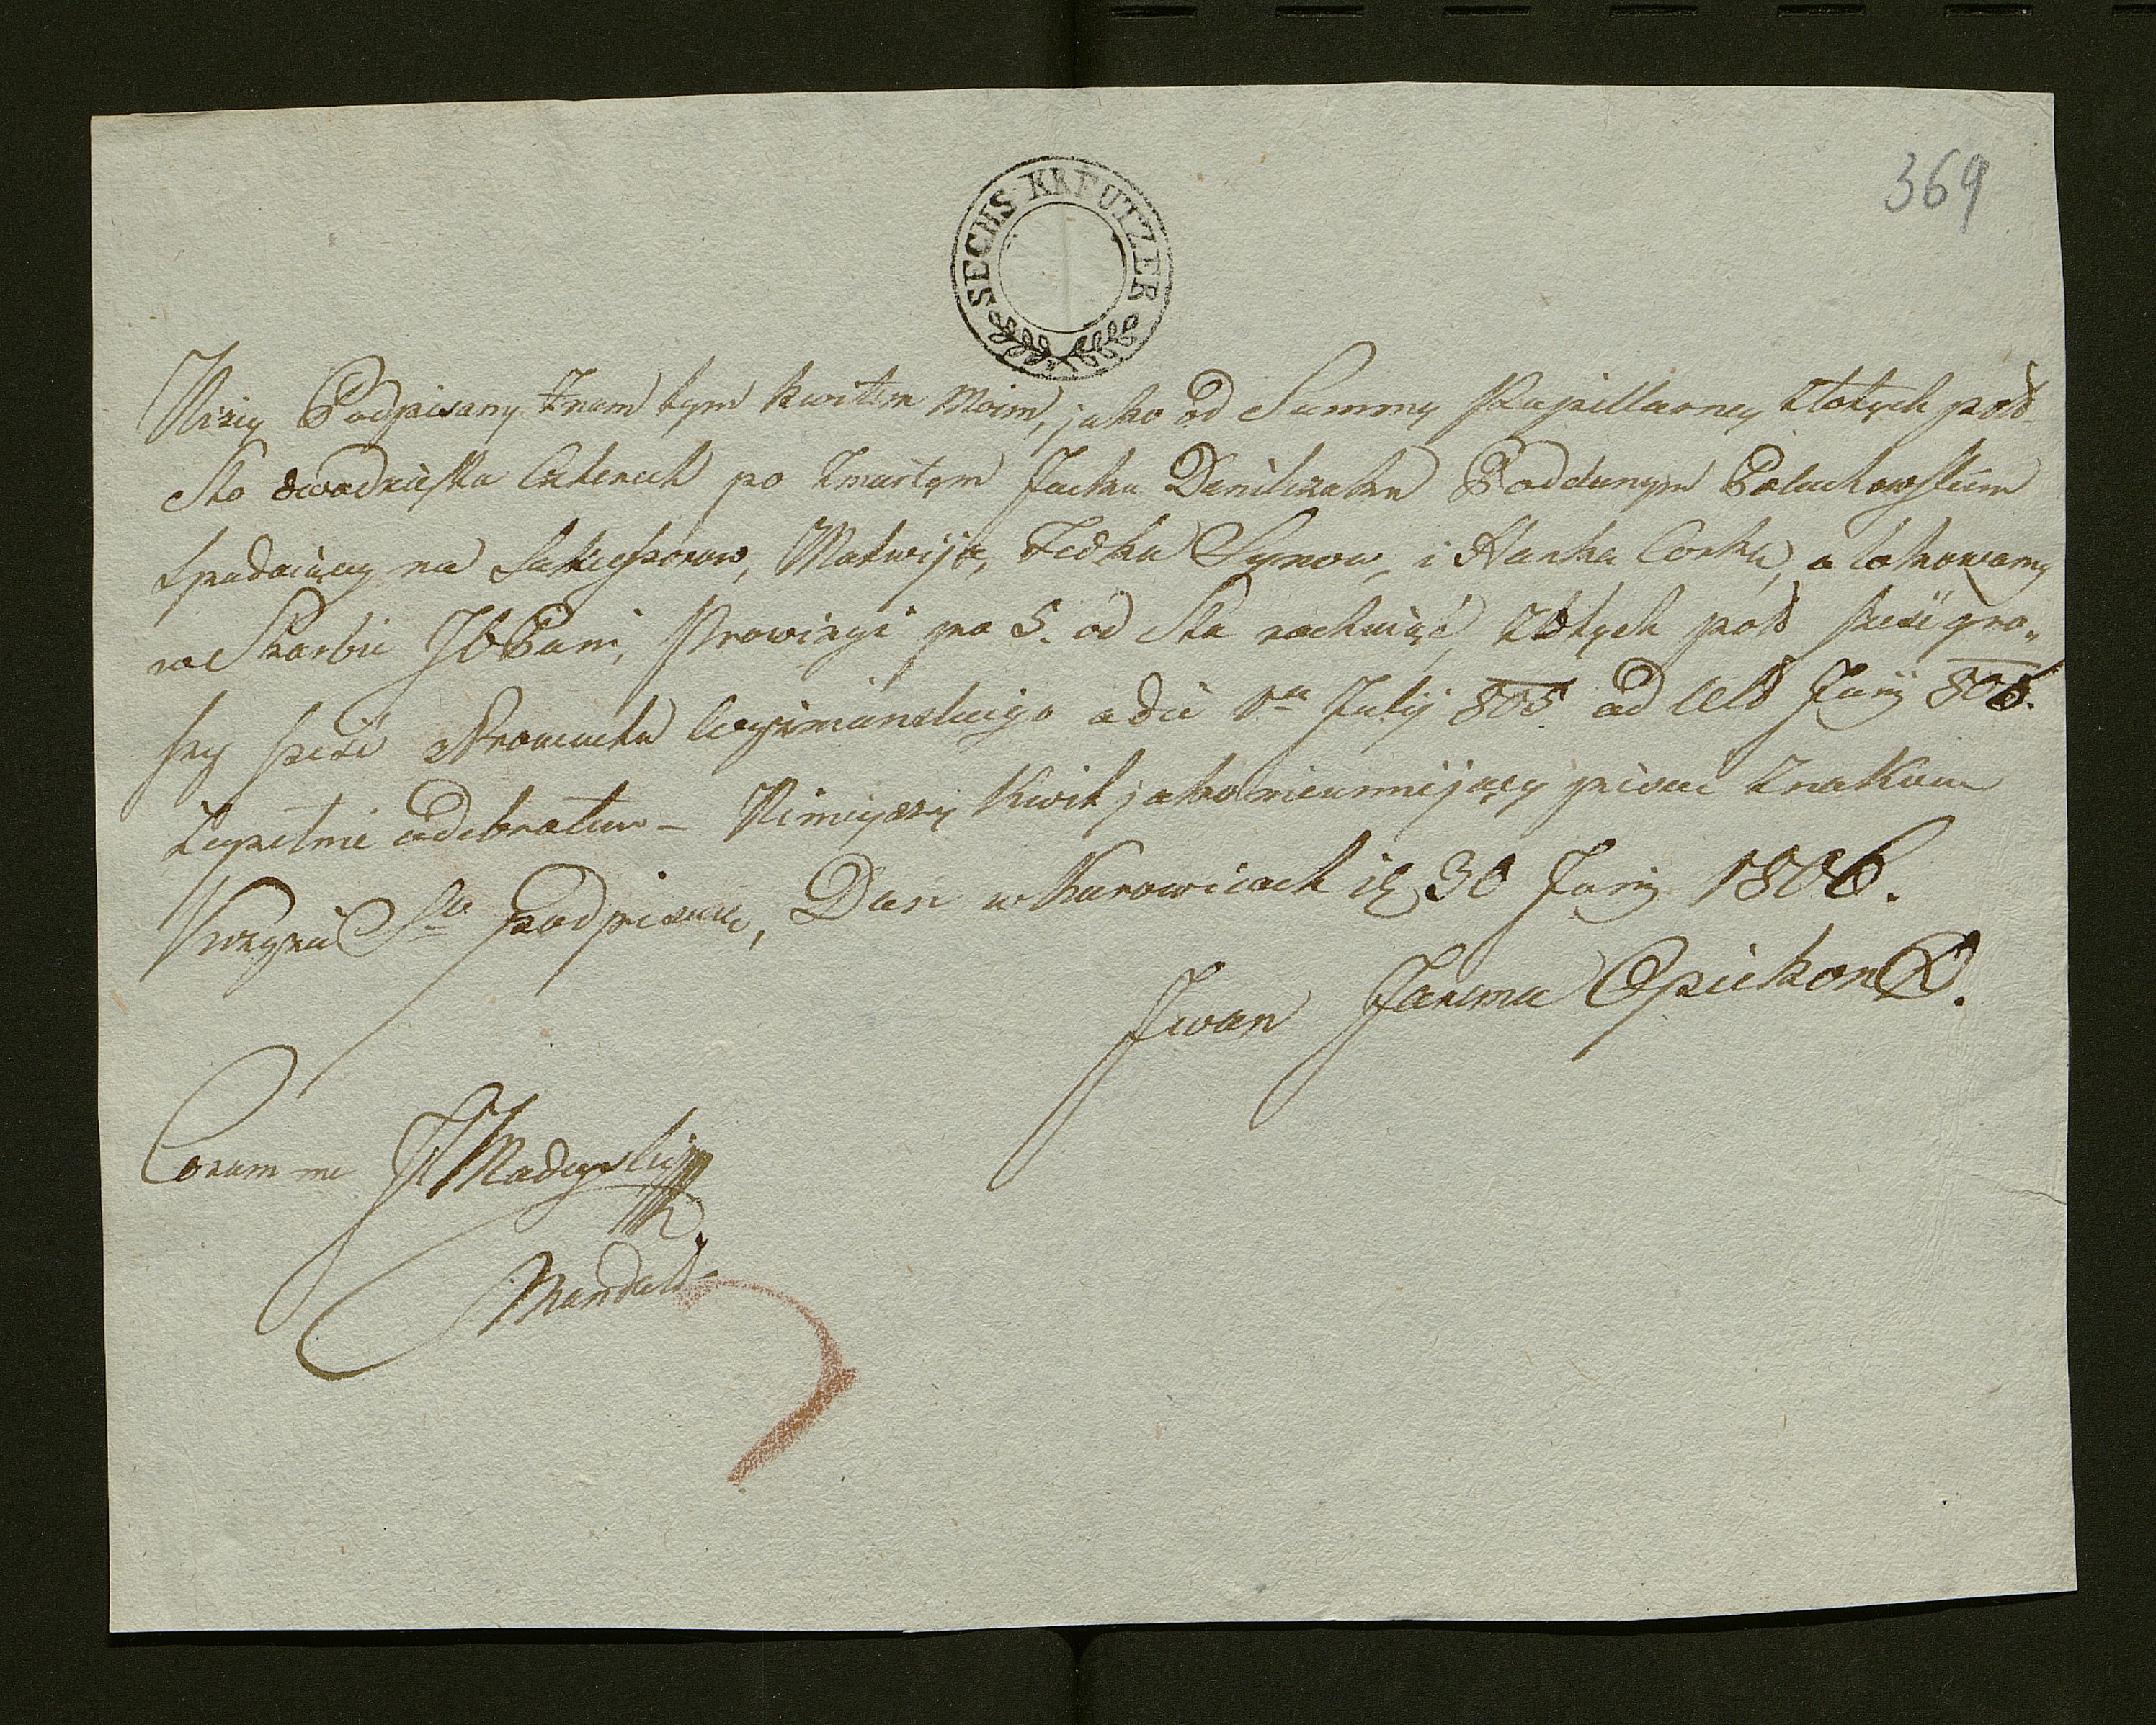 369
SECHS KREUTZER
Niżey Podpisany znam tym kwitem Moim, jako od Summy Pupillarney Złotych pols
Sto dwadzieścia czterech po zmarłym Jacku Daniliczaku Poddanym Poluchowskim
spadaiącey na Sukcessorow, Matwija, Fedka Synow, i Hanka Corka, a lokowaney
w Skarbie JW Pani, Prowizyi pro 5. od Sta rachuiąć, złotych pols sześć gro„
szy sześć Prowentu a die 1ma Julij 805 ad Ult Junij 806.
Zupełnie odebrałem – Niniejszy Kwit jako nieumiejący pisać znakiem
Krzyża S° podpisuię, Dan w Kurowicach d 30 Junij 1806.
Jwan Jarema Opiekon
Coram me Madeyski
Mandat